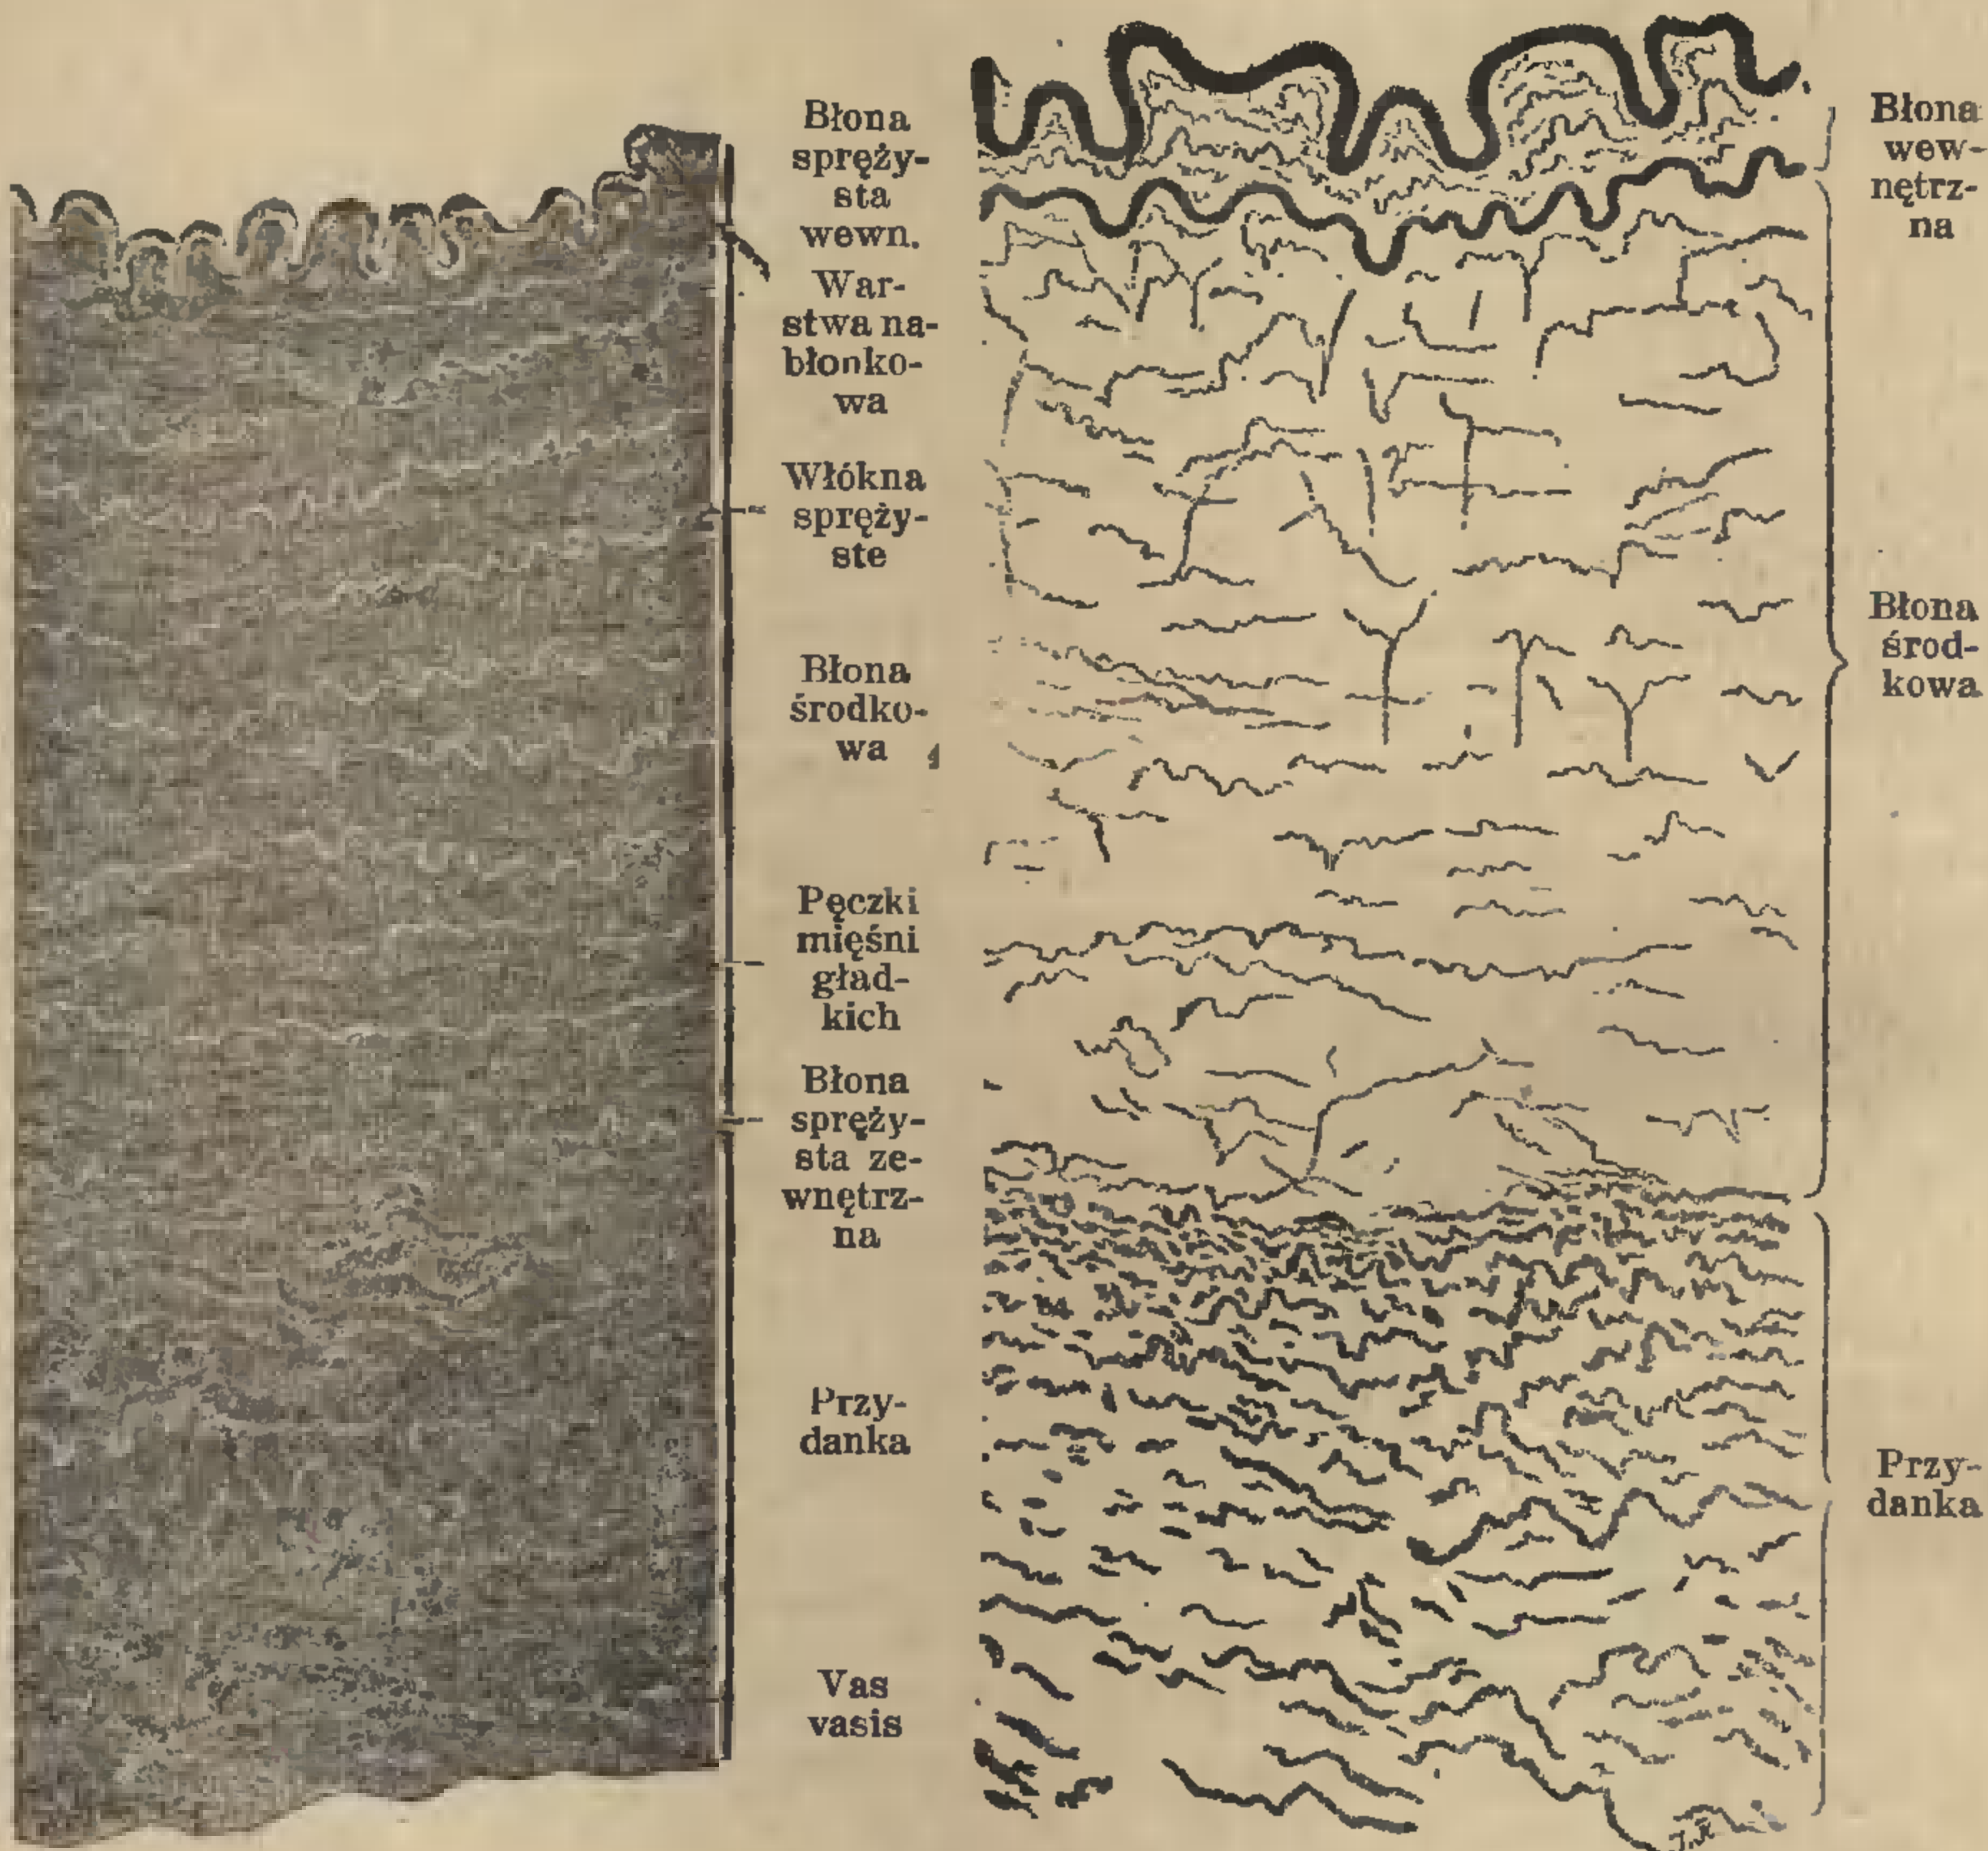 Błona
spręży-
sta
wewn.
War-
stwa na-
błonko-
wa
Włókna
spręży-
ste
Błona
środko-
wa
Pęczki
mięśni
gład-
kich
Błona
spręży-
sta ze-
wnętrz-
na
Przy-
danka
Vas
vasis
Błona
wew-
nętrz-
na
Błona
środ-
kowa
Przy-
danka